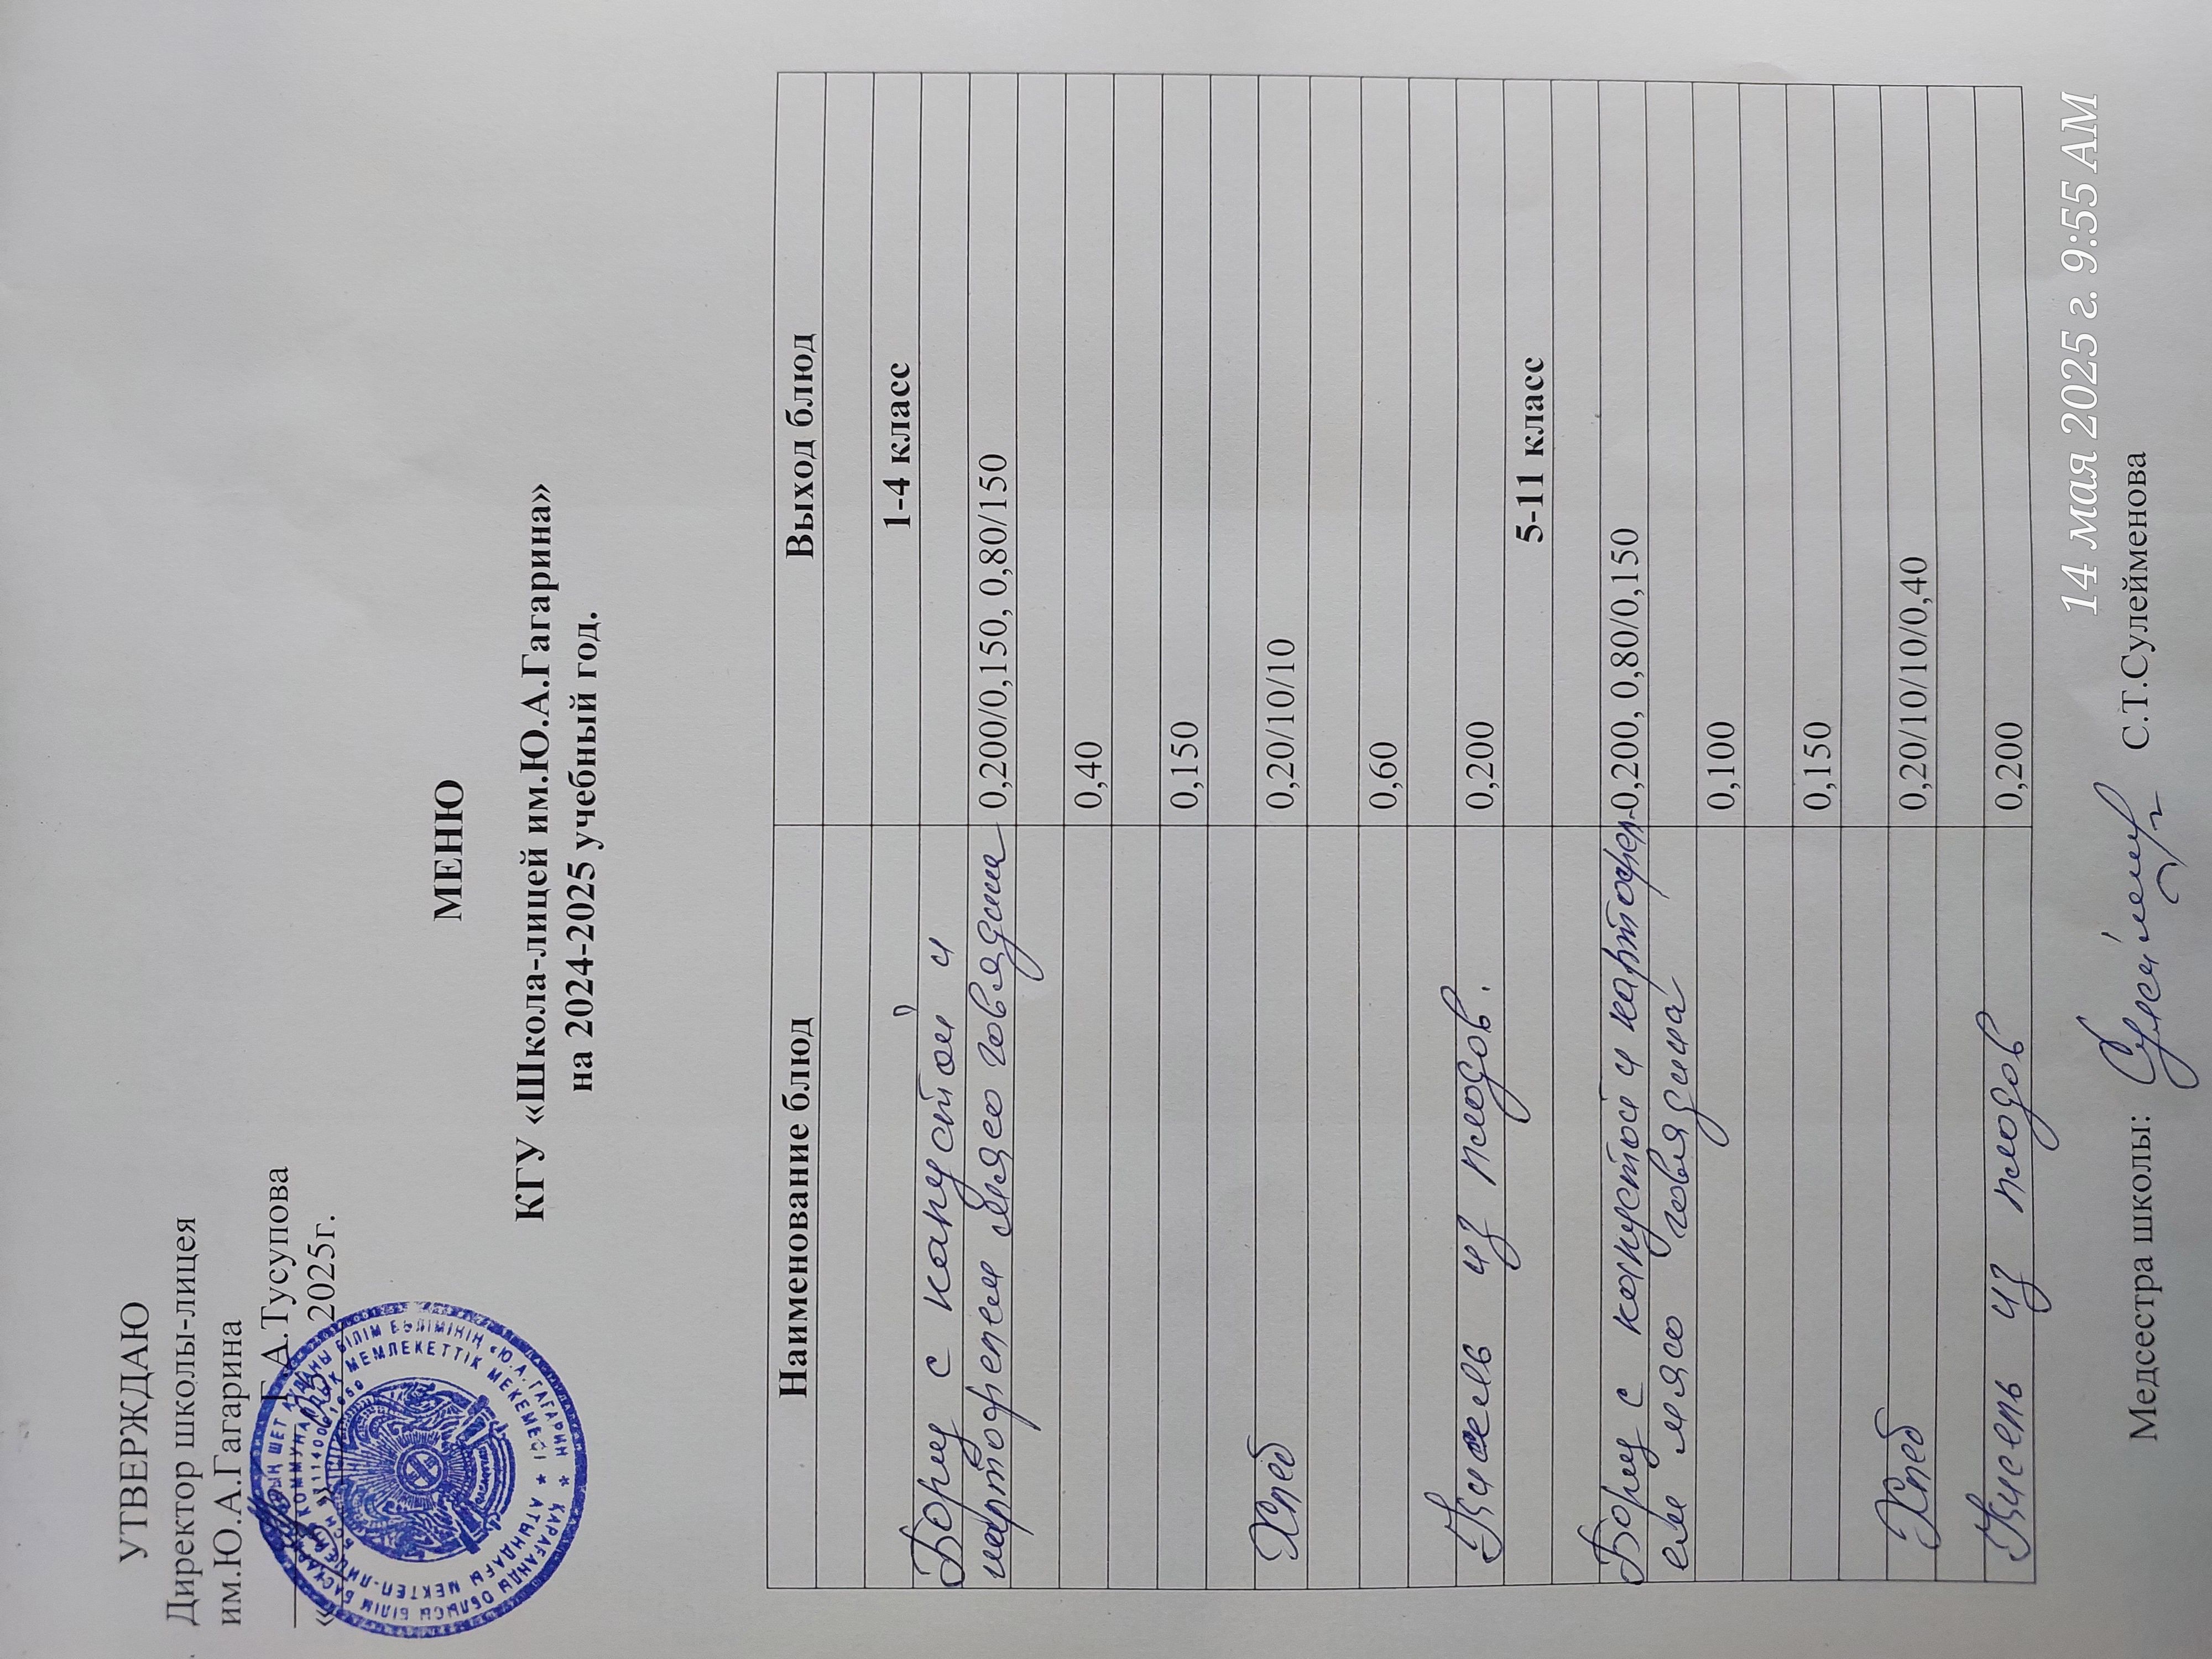 УТВЕРЖДАЮ
Директор школы-лицея
им.Ю.А.Гагарина
Г.А.Тусупова
« » 2025г.
МЕНЮ
КГУ «Школа-лицей им.Ю.А.Гагарина»
на 2024-2025 учебный год.
Наименование блюд Выход блюд
1-4 класс
Борщ с капустой и
картофелем мясо говядина 0,200/0,150, 0,80/150
0,40
0,150
Хлеб 0,20/10/10
0,60
Кисель из плодов. 0,200
5-11 класс
Борщ с капустой и картофел- 0,200, 0,80/0,150
ем мясо говядина
0,100
0,150
Хлеб 0,20/10/10/0,40
Кисель из плодов 0,200
14 мая 2025 г. 9:55 AM
Медсестра школы: С.Т.Сулейменова